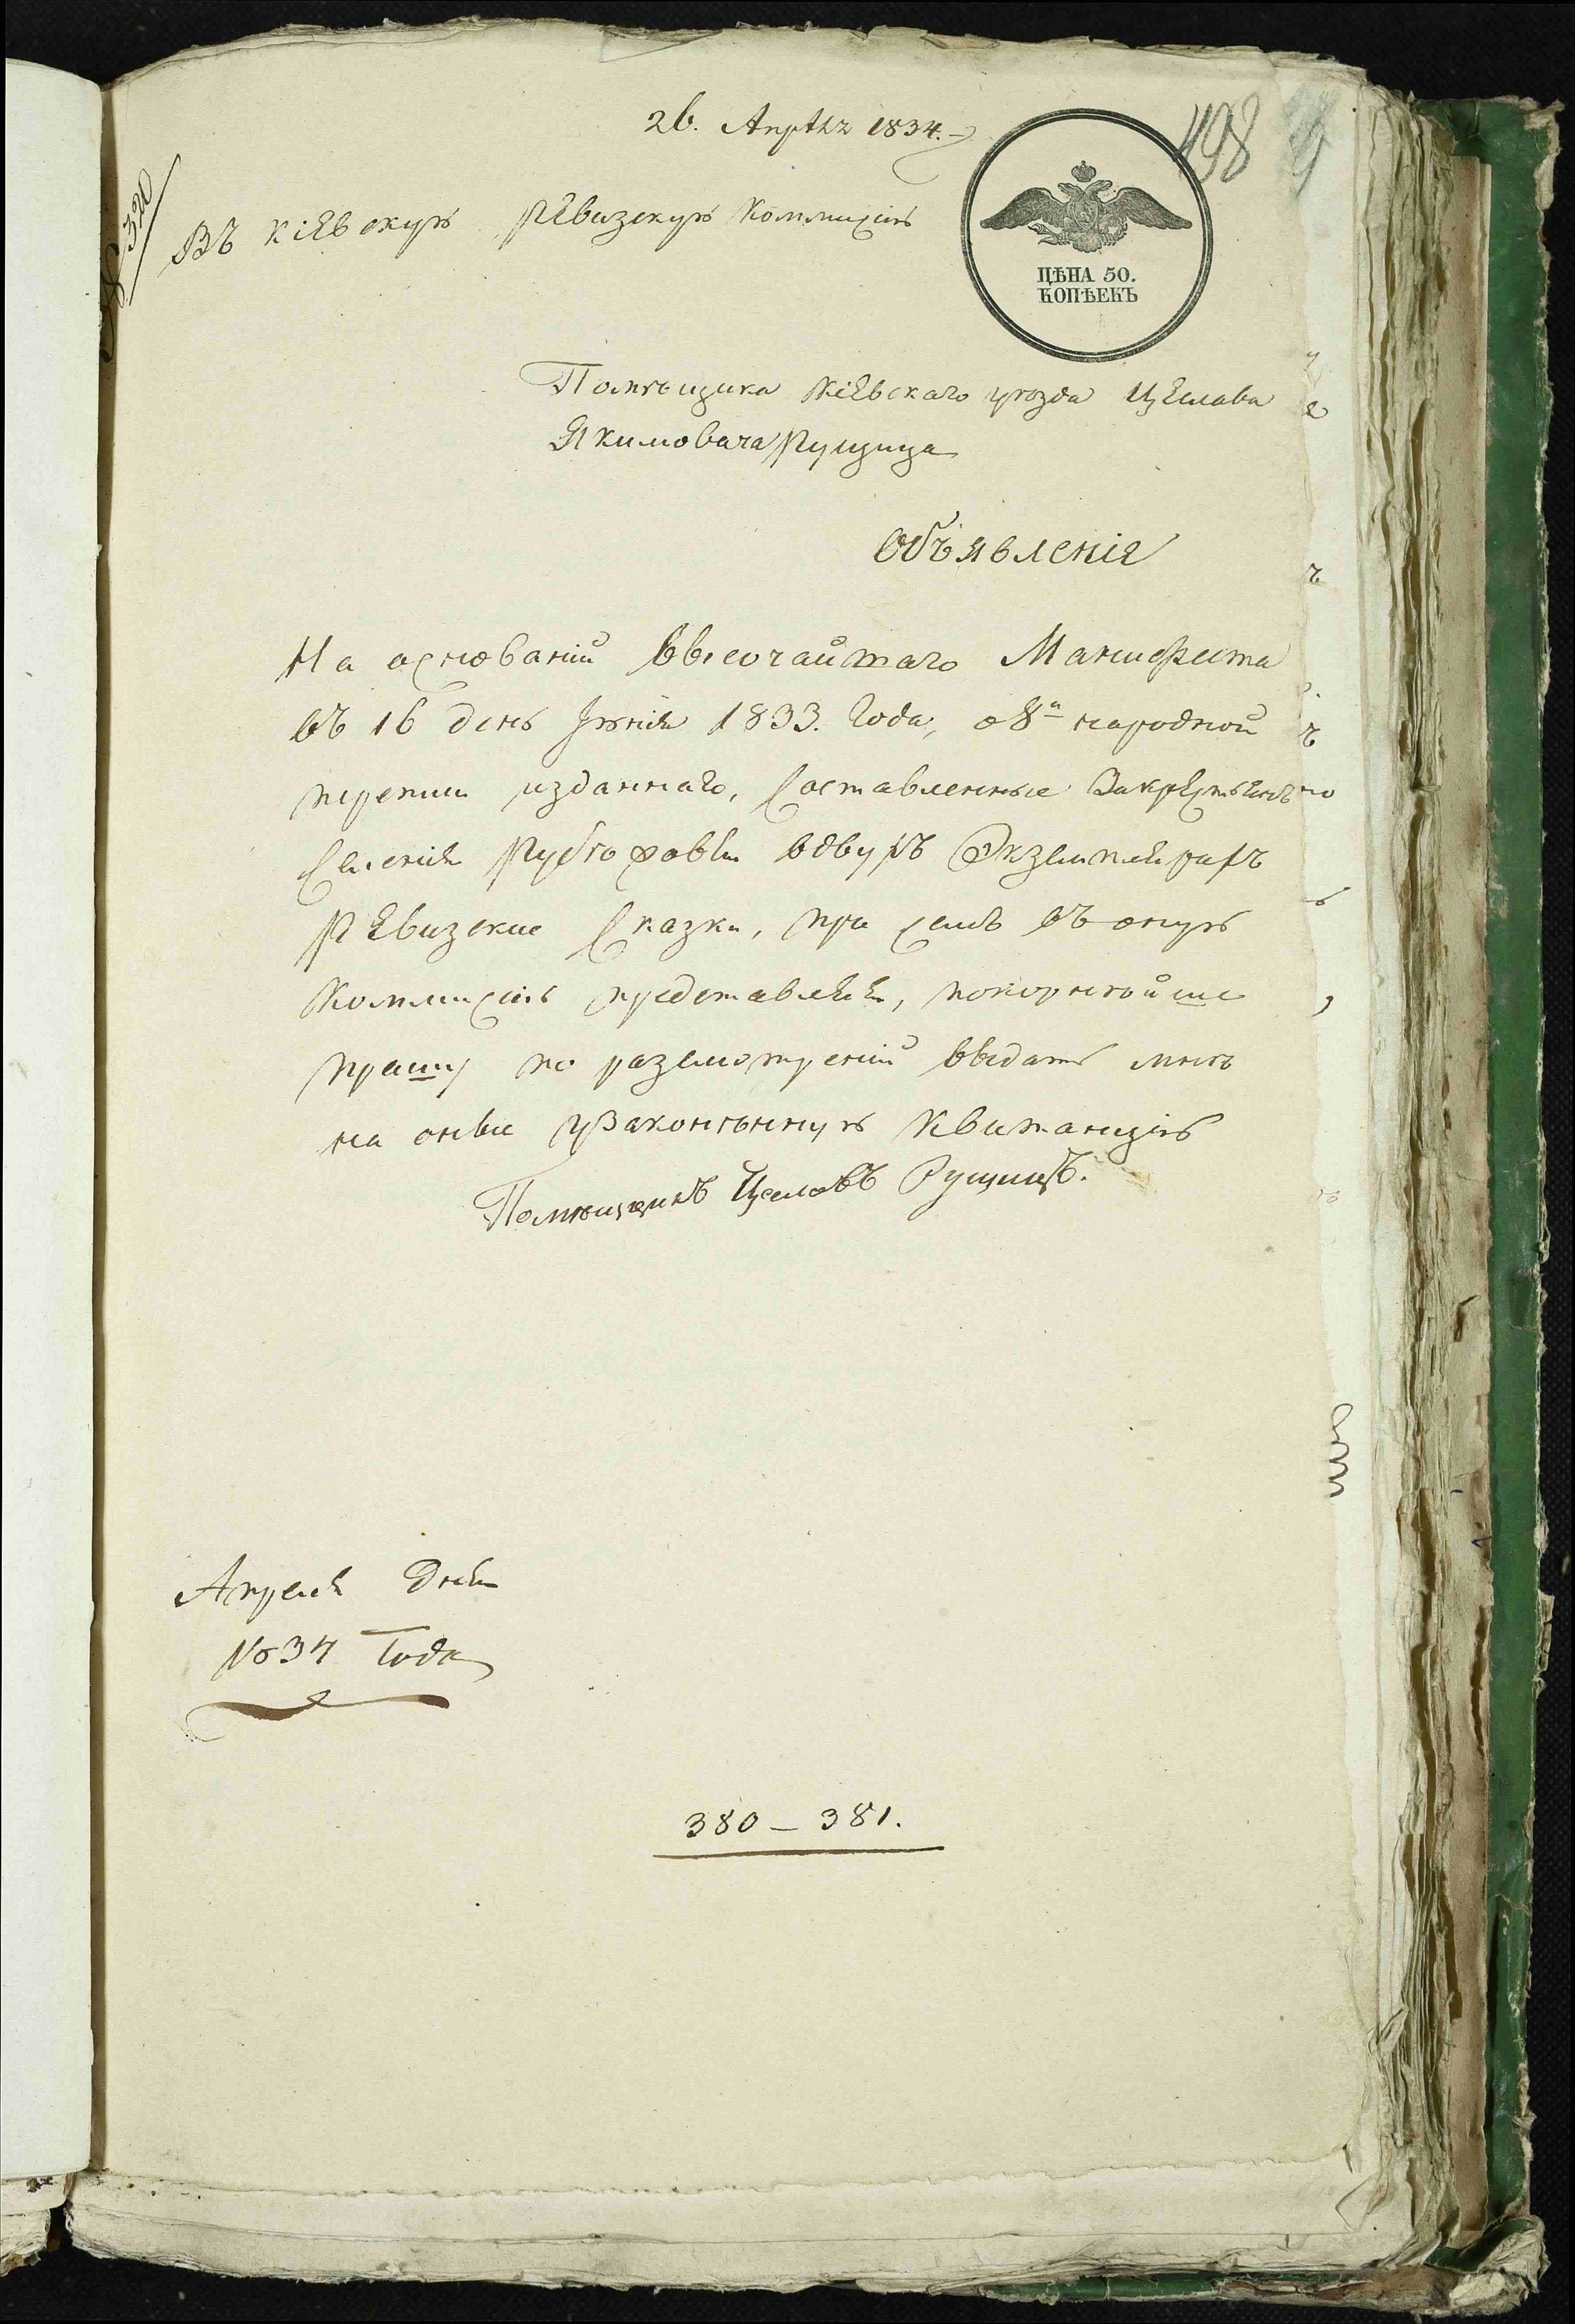 26. Апрѣлѧ 1834.
498
№ 320
Въ Кіевскую Ревизскую Коммисію
ЦѢНА 50.
КОПѢЕКЪ
Помѣщика Кіевскаго уѣзда Цеслава
Якимовача Рущица
Объявленія
На основаніи Высочайшаго Манифеста
въ 16 день Іюнія 1833. Года, о 8й народной
переписи изданнаго, Составленные
Селенія вдвухъ Экземплярахъ
Ревизские Сказки, при семъ въ оную
Коммисію представляя, покорнѣйше
прошу по разсмотреніи выдать мнѣ
на оные узаконѣнную Квитанцію
Помѣщикъ Цеславъ Рущицъ.
Апреля Дня
1834 Года
380 – 381.